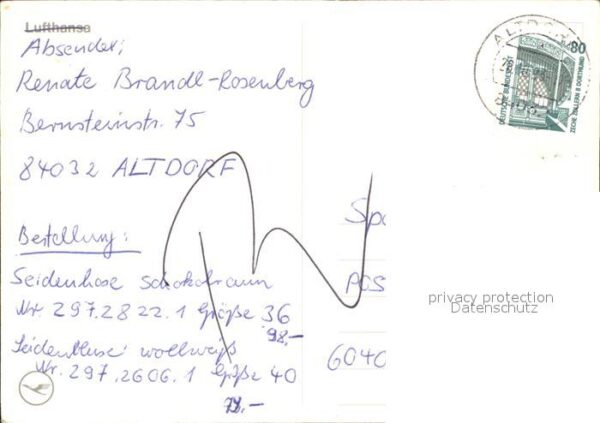 Lufthansa
Absender:
Renate Brandl-Rosenberg
Bernsteinstr. 75
84032 ALTDORF
Bestellung:
Seidenhose schokobraun
Nr 297.2822.1 Größe 36
98,-
Seidenbluse wollweiß
Nr. 297.2606.1 Größe 40
79,-
ALTDORF
80
DEUTSCHE BUNDESPOST
ZECHE ZOLLERN II DORTMUND
POS
6040
privacy protection
Datenschutz